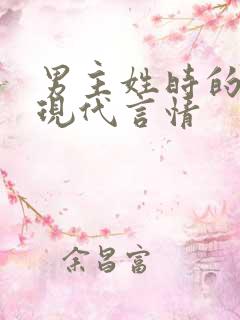 男主姓時的
現代言情
余昌富